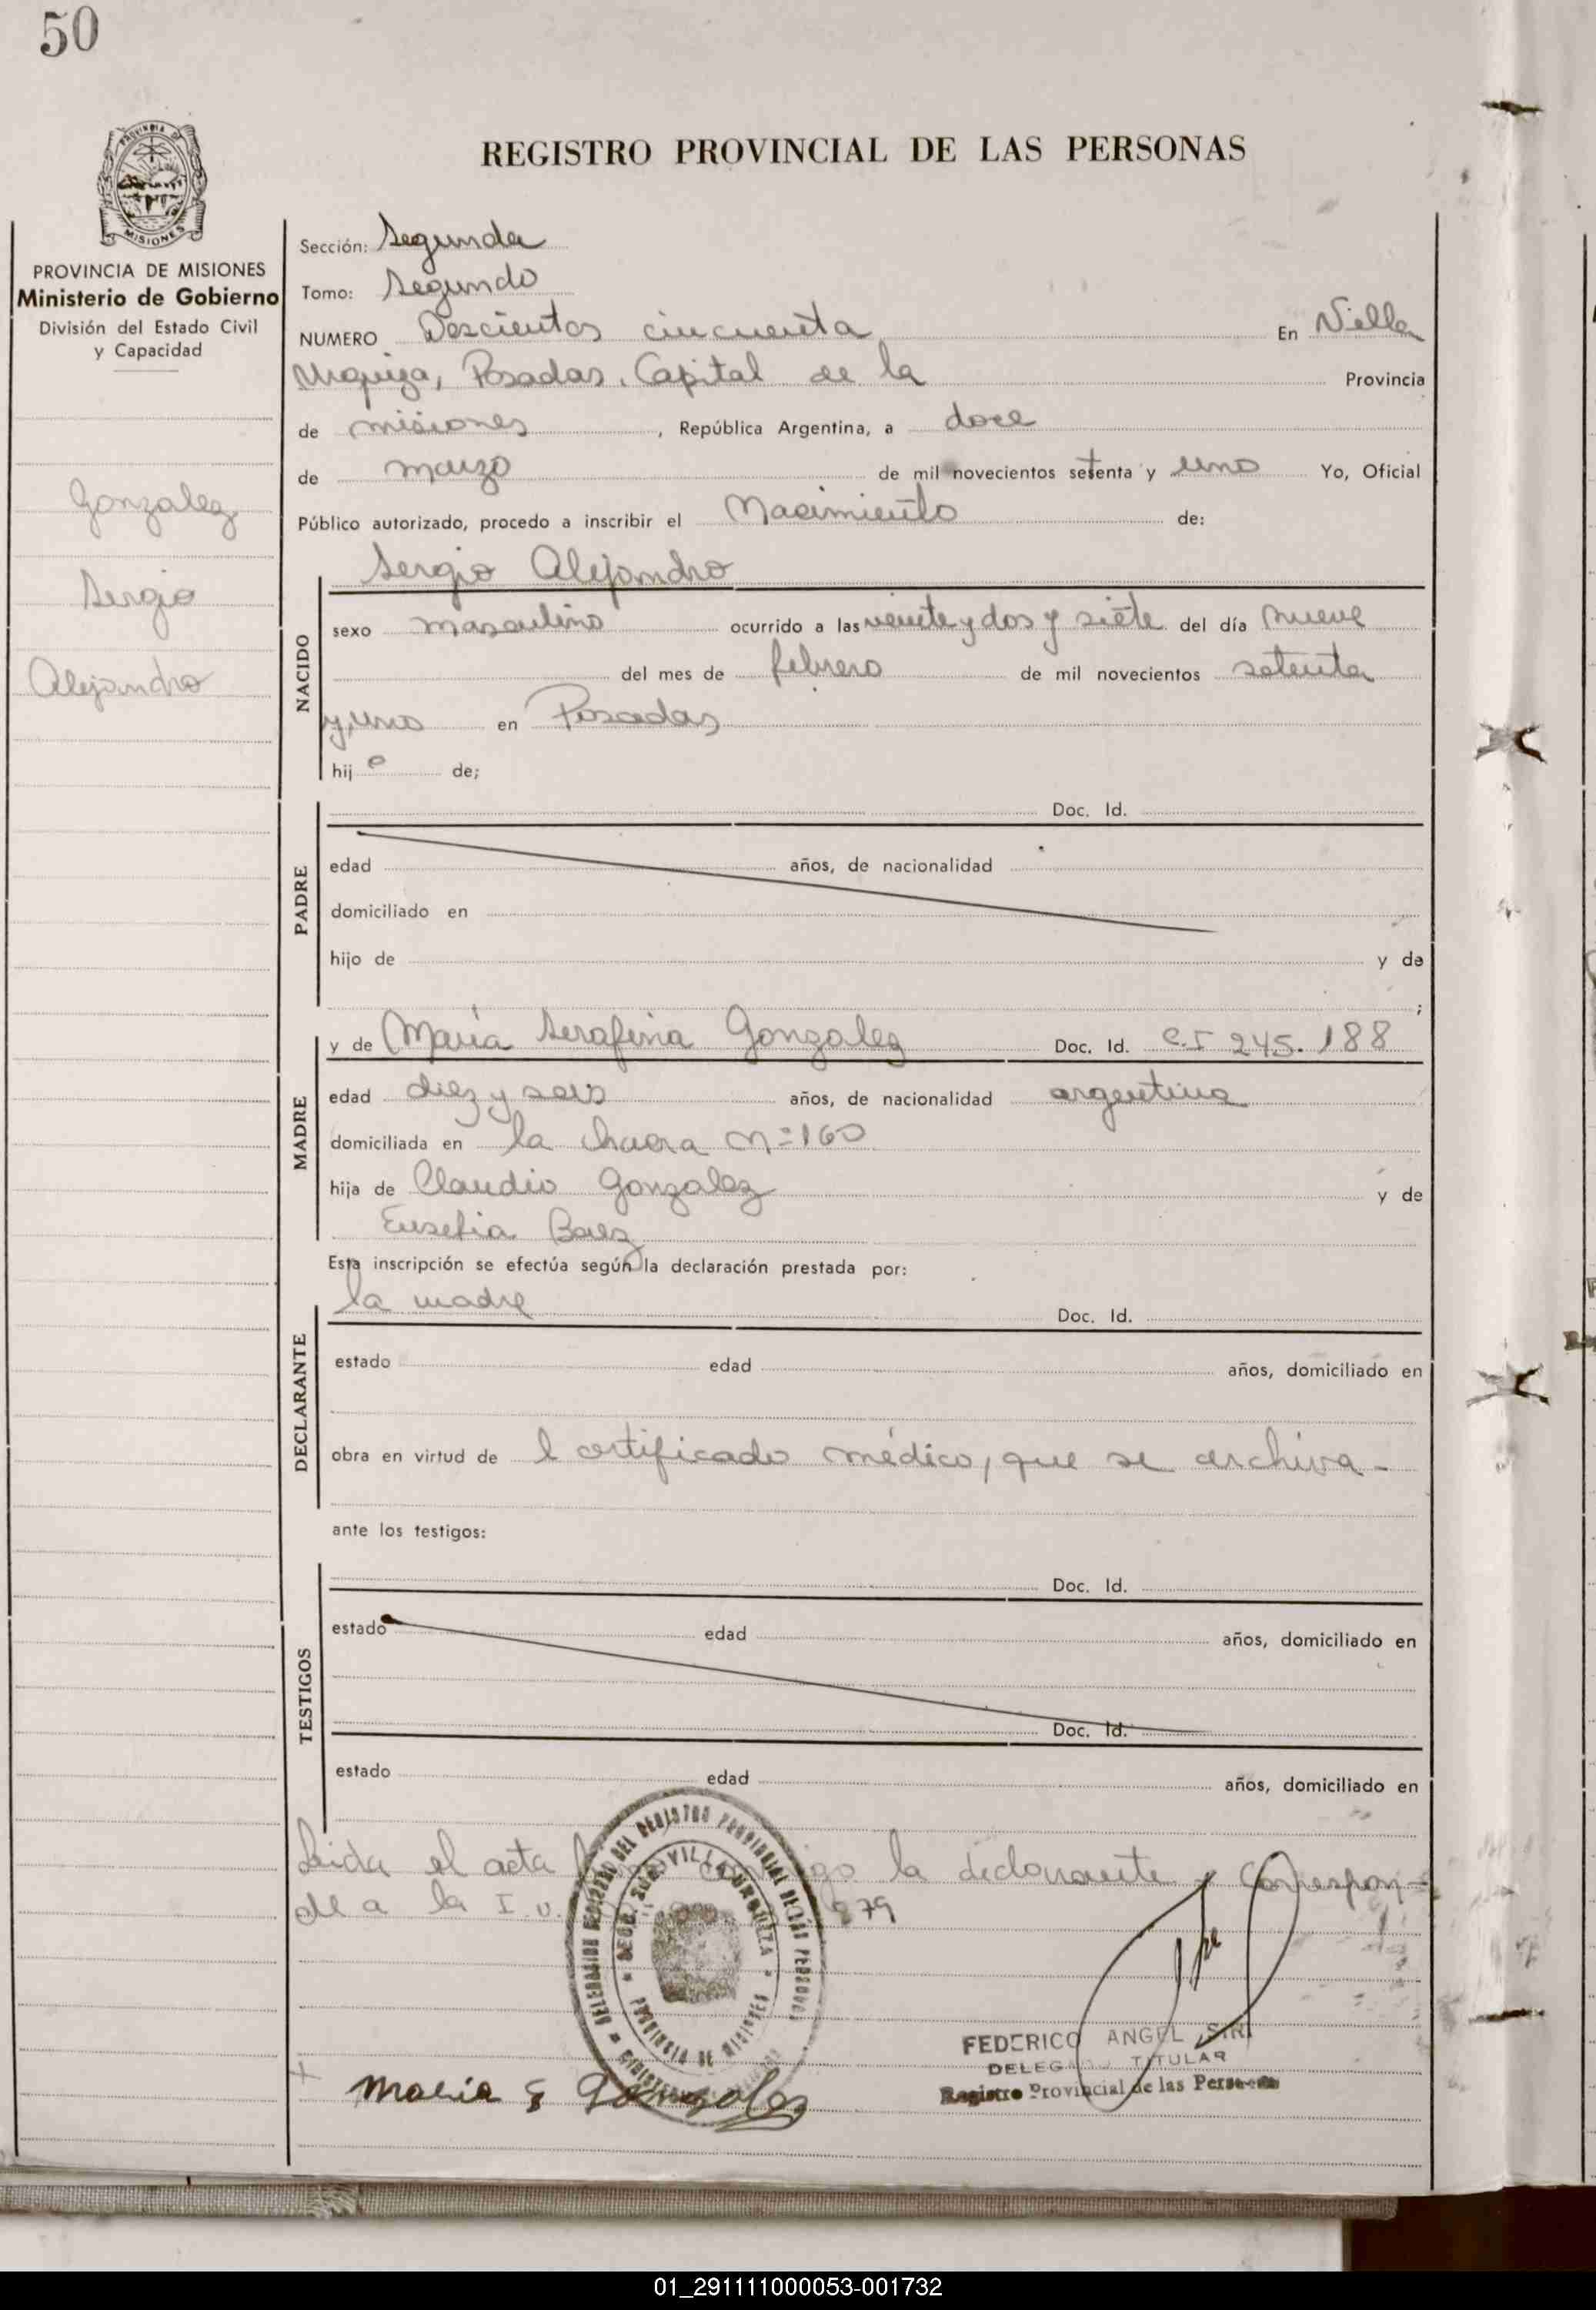 50
PROVINCIA DE
MISIONES
PROVINCIA DE MISIONES
Ministerio de Gobierno
División del Estado Civil
y Capacidad
Gonzalez
Sergio
Alejandro
REGISTRO PROVINCIAL DE LAS PERSONAS
Sección: Segunda
Tomo: Segundo
NUMERO Doscientos cincuenta En Villa
Urquiza, Posadas, Capital de la Provincia
de misiones, República Argentina, a doce
de marzo de mil novecientos setenta y uno Yo, Oficial
Público autorizado, procedo a inscribir el Nacimiento de:
Sergio Alejandro
NACIDO
sexo masculino ocurrido a las veinte y dos y siete del día nueve
del mes de febrero de mil novecientos setenta
y uno en Posadas
hij o de;
PADRE
Doc. Id.
edad años, de nacionalidad
domiciliado en
hijo de y de
;
MADRE
y de María Serafina Gonzalez Doc. Id. C.I 245.188
edad diez y seis años, de nacionalidad argentina
domiciliada en la chacra Nº 160
hija de Claudio Gonzalez y de
Eusebia Baez
Esta inscripción se efectúa según la declaración prestada por:
DECLARANTE
la madre Doc. Id.
estado edad años, domiciliado en
obra en virtud de l certificado médico, que se archiva-
ante los testigos:
TESTIGOS
Doc. Id.
estado edad años, domiciliado en
Doc. Id.
estado edad años, domiciliado en
Leida el acta la declarante y Correspon-
de a la I. 879
VILLA URQUIZA
PROVINCIA DE MISIONES
Maria S Gonzalez
FEDERICO ANGEL
DELEGADO TITULAR
Registro Provincial de las Personas
01_291111000053-001732